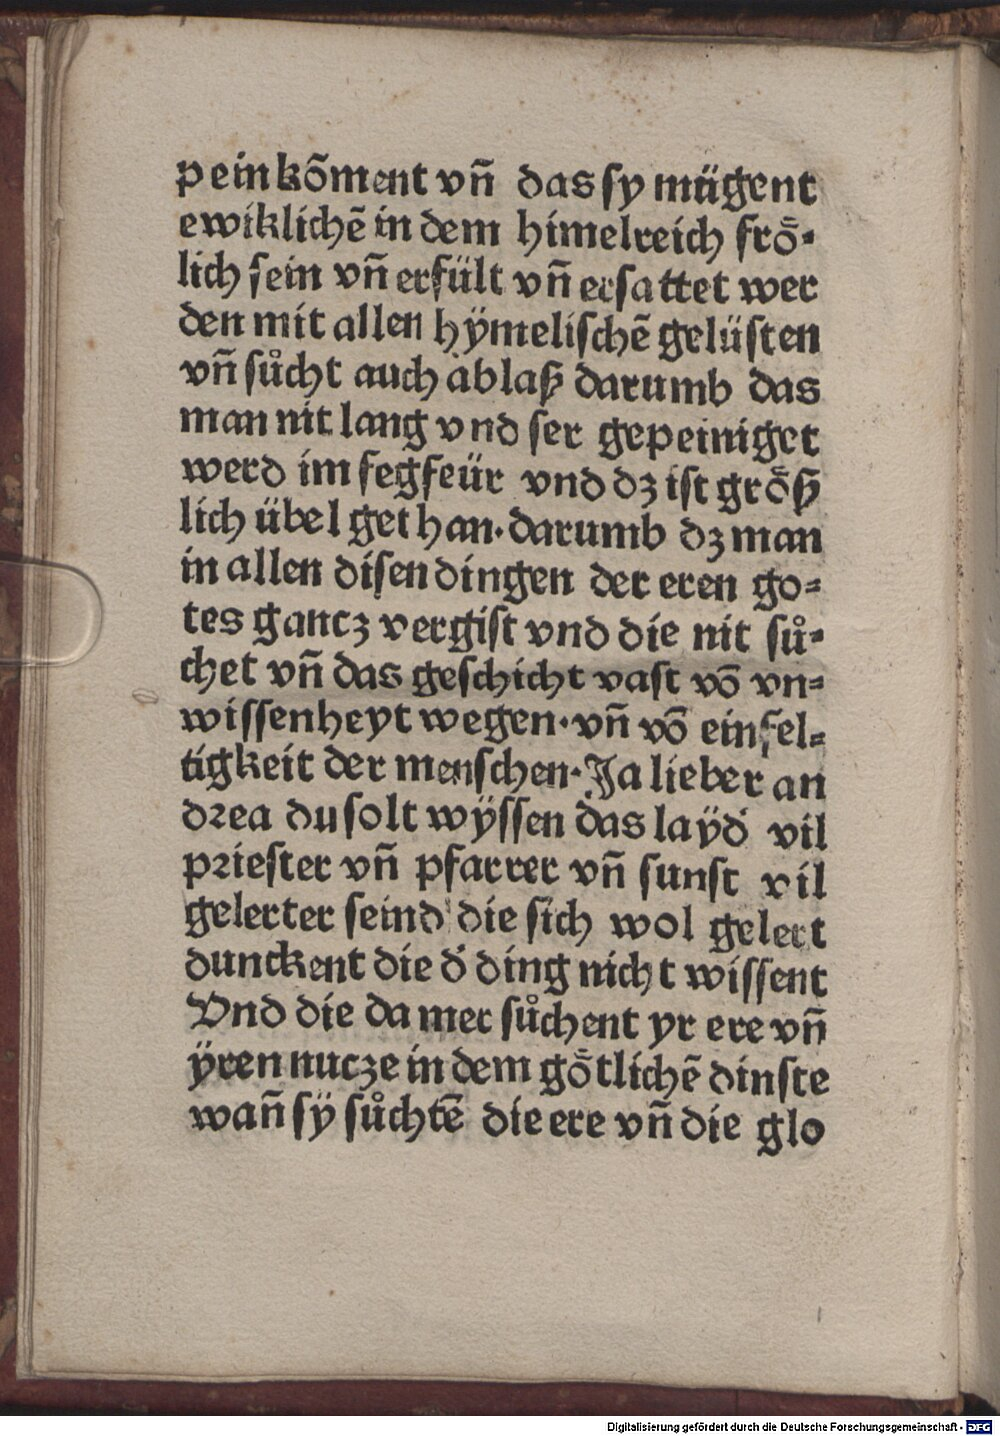 pein kõment vñ das sy mügent
ewiklichẽ in dem himelreich froͤ-
lich sein vñ erfült vñ ersattet wer
den mit allen hÿmelischẽ gelüsten
vñ suͦcht auch ablaß darumb das
man nit lang vnd ser gepeiniget
werd im fegfeür vnd dz ist groͤß
lich übel gethan. darumb dz man
in allen disen dingen der eren go-
tes gancz vergist vnd die nit suͦ-
chet vñ das geschicht vast võ vn-
wissenheyt wegen. vñ võ einfel-
tigkeit der menschen. Ja lieber an
drea du solt wÿssen das laÿd vil
priester vñ pfarrer vñ sunst vil
gelerter seind die sich wol gelert
dunckent die d' ding nicht wissent
Vnd die da mer suͦchent yr ere vñ
ÿren nucze in dem goͤtlichẽ dinste
wañ sÿ suͦchtẽ die ere vñ die glo
Digitalisierung gefördert durch die Deutsche Forschungsgemeinschaft - DFG